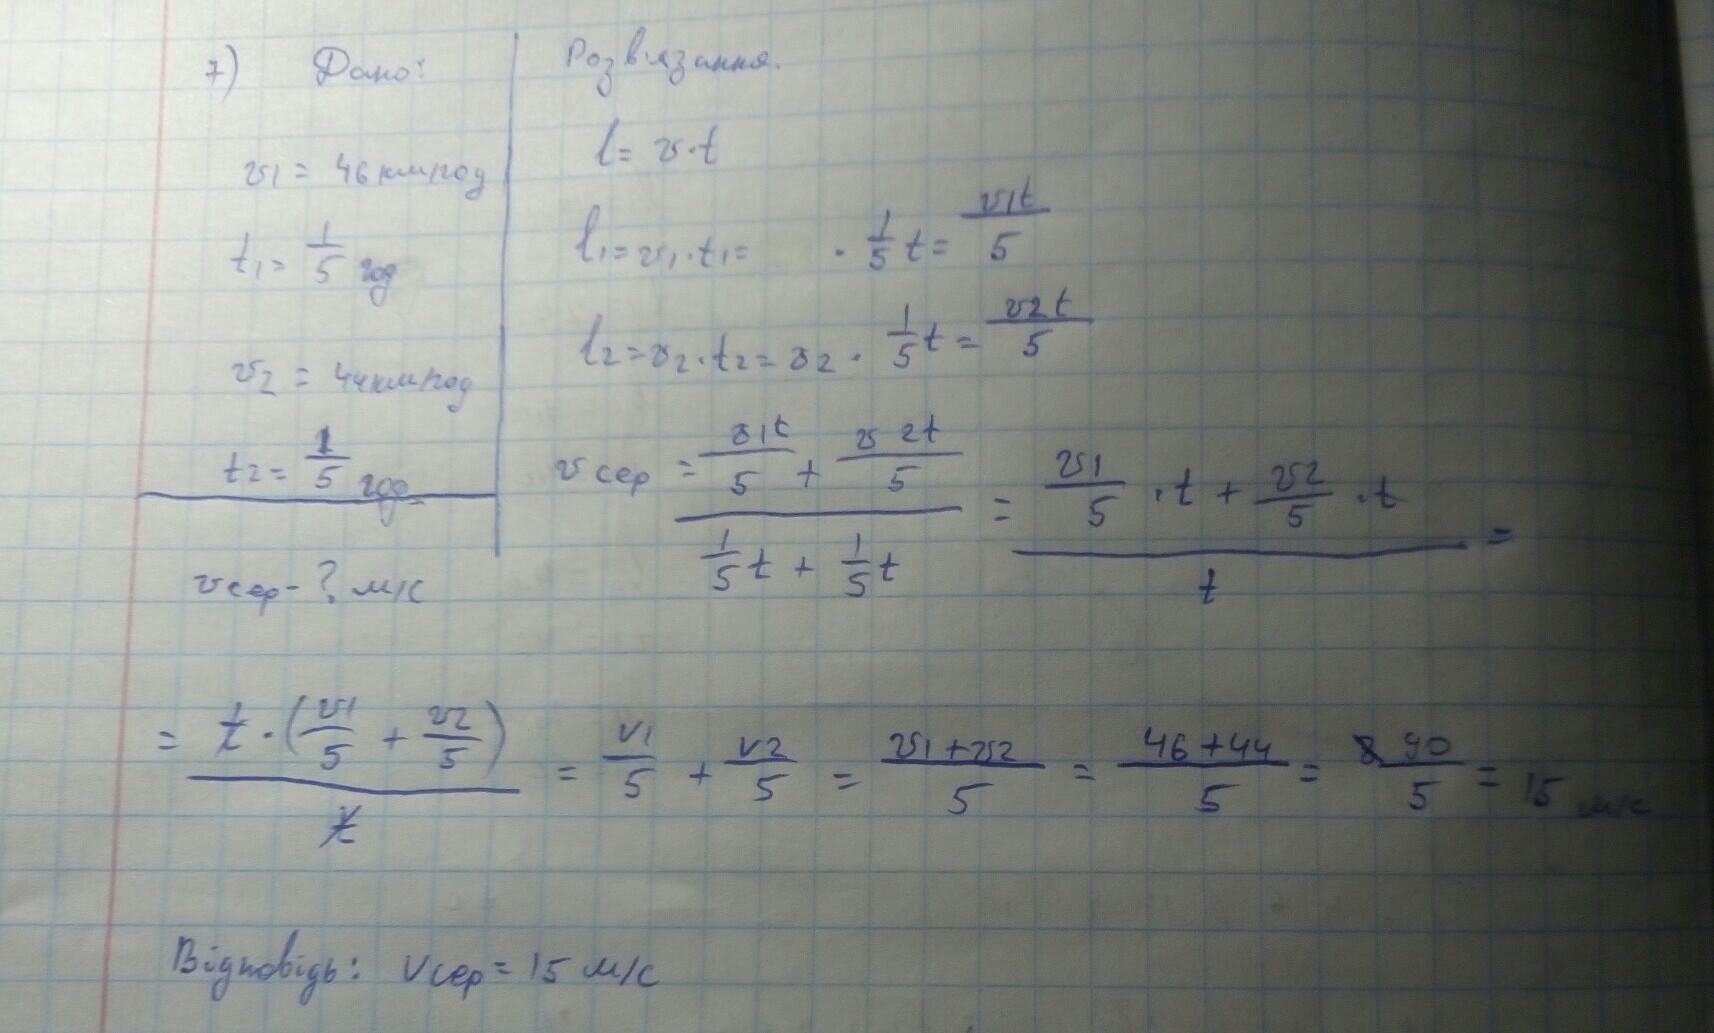 7) Дано:
v1 = 46 км/год
t1 = 1/5 год
v2 = 44 км/год
t2 = 1/5 год
vсер - ? м/с
Розв'язання.
l = v·t
l1 = v1·t1 = · 1/5 t = v1t/5
l2 = v2·t2 = v2 · 1/5 t = v2t/5
vсер = (v1t/5 + v2t/5)/(1/5 t + 1/5 t) = (v1/5 ·t + v2/5 ·t)/t =
= t·(v1/5 + v2/5)/t = v1/5 + v2/5 = (v1+v2)/5 = (46+44)/5 = 90/5 = 15 м/с
Відповідь: vсер = 15 м/с